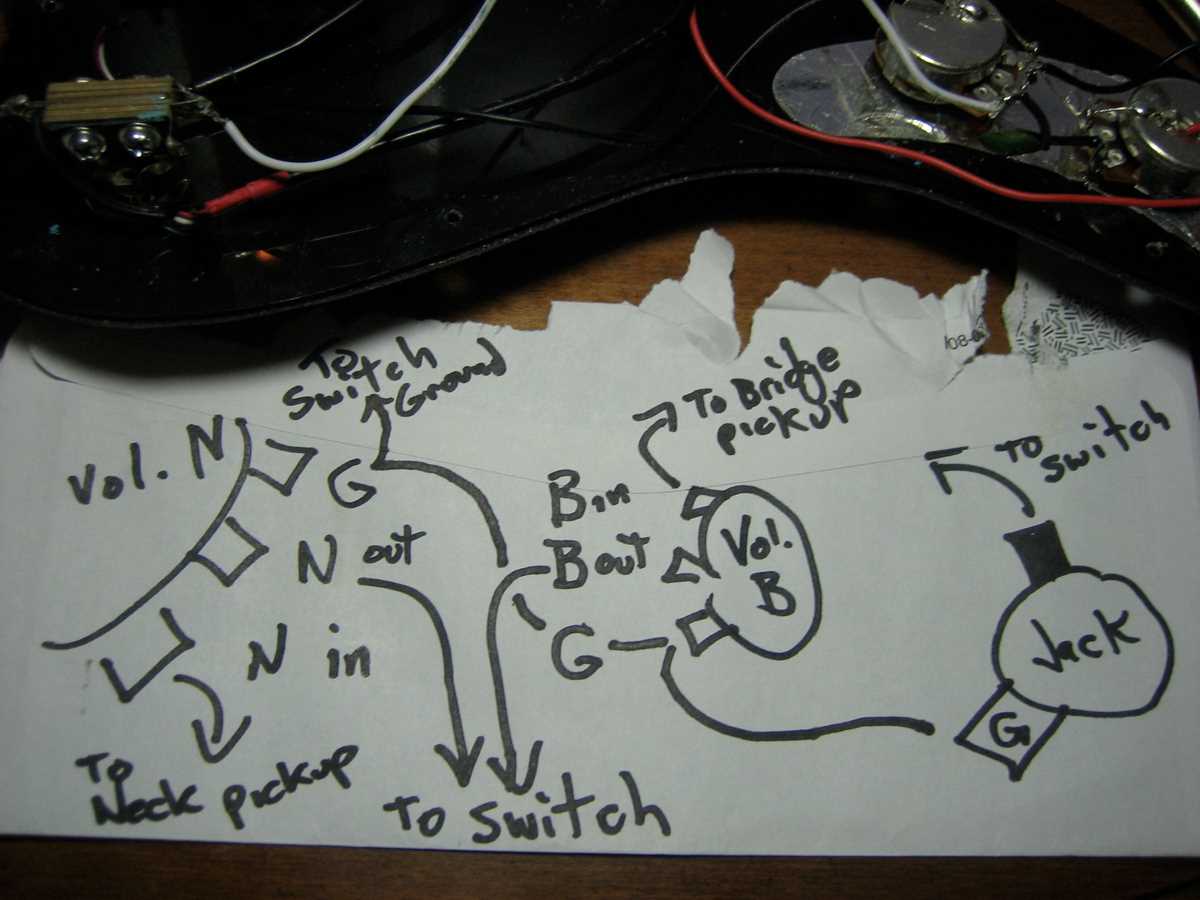 To
Switch
Ground
Vol. N
G
N out
N in
To
Neck pickup
To Switch
B in
B out
G
To Bridge
pickup
Vol.
B
To
Switch
Jack
G